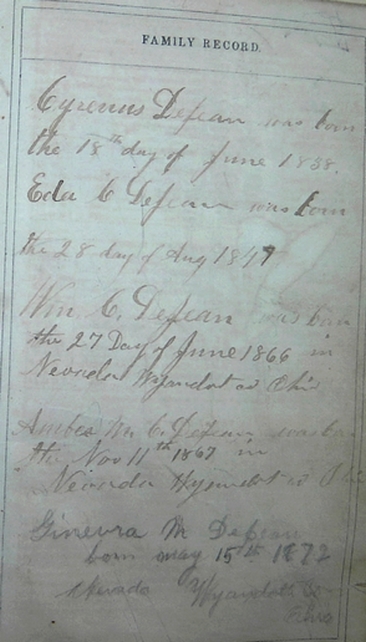 FAMILY RECORD.
Cyrenus Defean was born
the 18th day of June 1838.
Eda C Defean was born
the 28 day of Aug 1847
Wm C. Defean was born
the 27 Day of June 1866 in
Nevada Wyandot co Ohio
M. C. Defean was
the Nov 11th 1867 in
Nevada Wyandot co
Ginevra M Defean
born may 15th 1872
Nevada Wyandott Co
Ohio